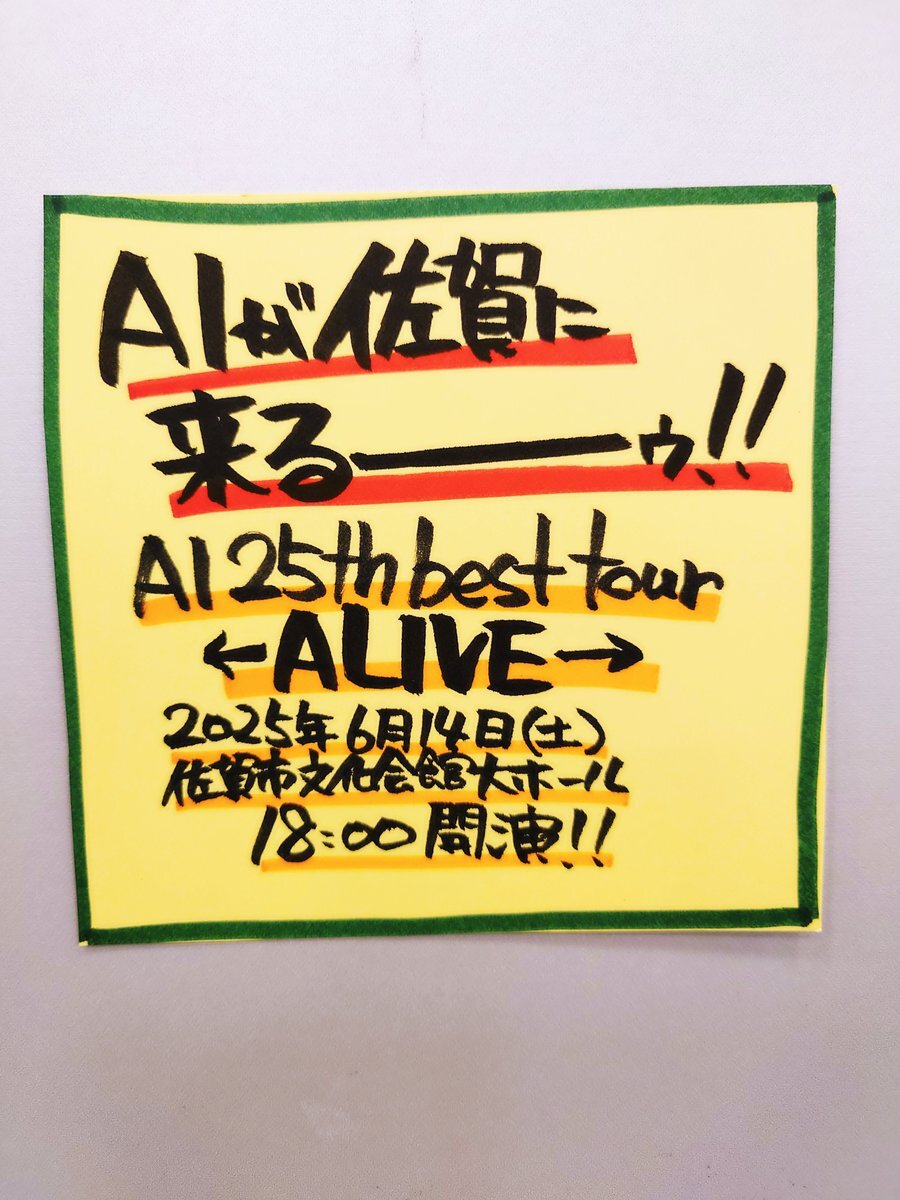 AIが佐賀に
来るーーゥ!!
AI 25th best tour
←ALIVE→
2025年6月14日(土)
佐賀市文化会館大ホール
18:00 開演!!